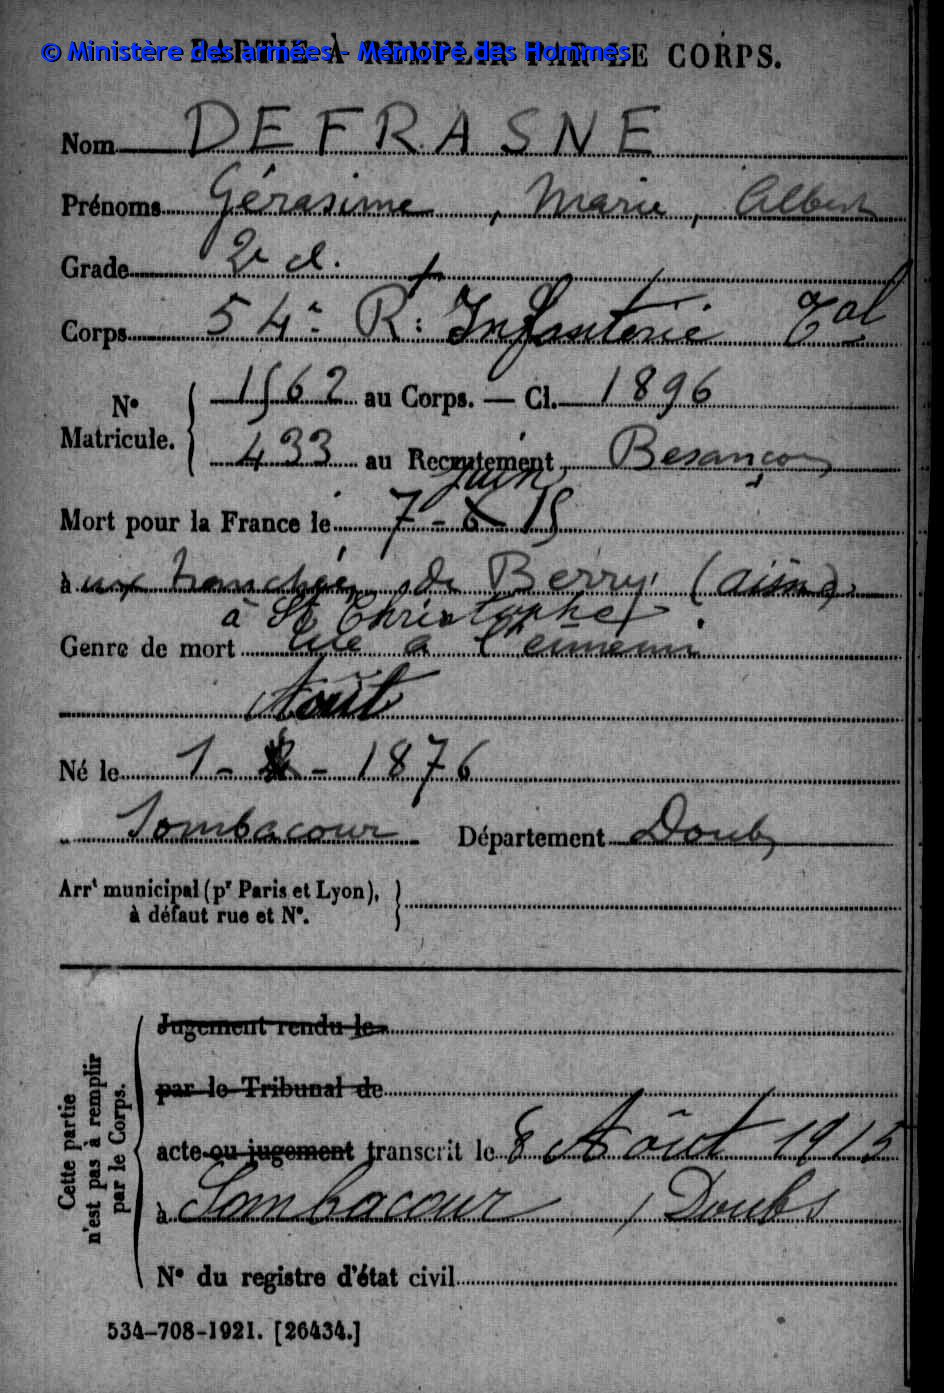 © Ministère des armées - Mémoire des Hommes
PARTIE À REMPLIR PAR LE CORPS.
Nom DEFRASNE
Prénoms Gérasime, Marie, Albert
Grade 2e cl.
Corps 54e Rt Infanterie Tal
No Matricule.
1562 au Corps. — Cl. 1896
433 au Recrutement Besançon
juin
Mort pour la France le 7 - 6 - 15
à ux tranchées de Berry (aisne)
à St Christophe
Genre de mort tué à l'ennemi
Août
Né le 1 - 8 - 1876
Sombacour Département Doubs
Arrt municipal (pr Paris et Lyon),
à défaut rue et No.
Cette partie
n'est pas à remplir
par le Corps.
Jugement rendu le
par le Tribunal de
acte ou jugement transcrit le 8 Août 1915
à Sombacour, Doubs
No du registre d'état civil
534-708-1921. [26434.]